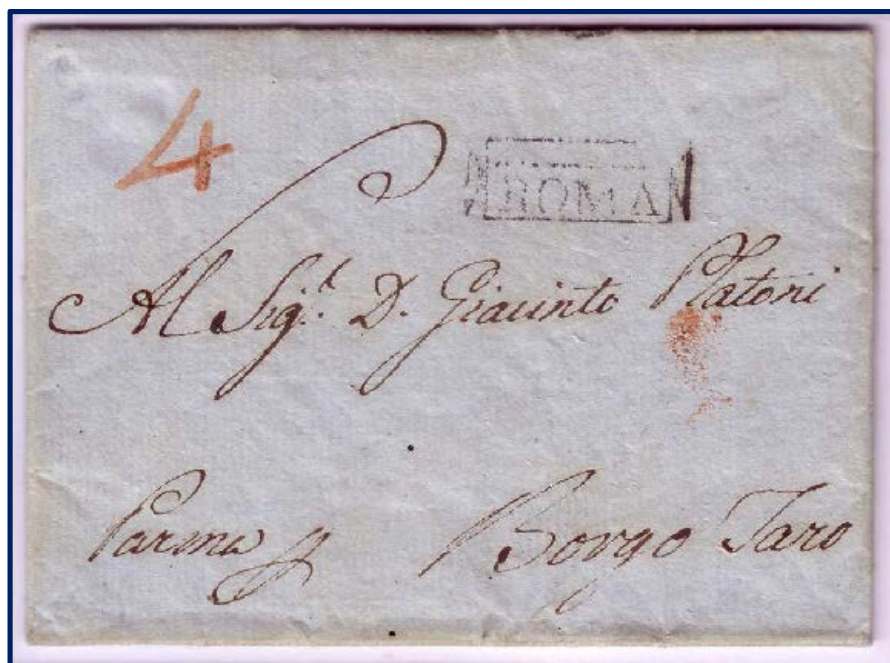 4
ROMA
Al Sig.r D. Giacinto Platoni
Parma p Borgo Taro